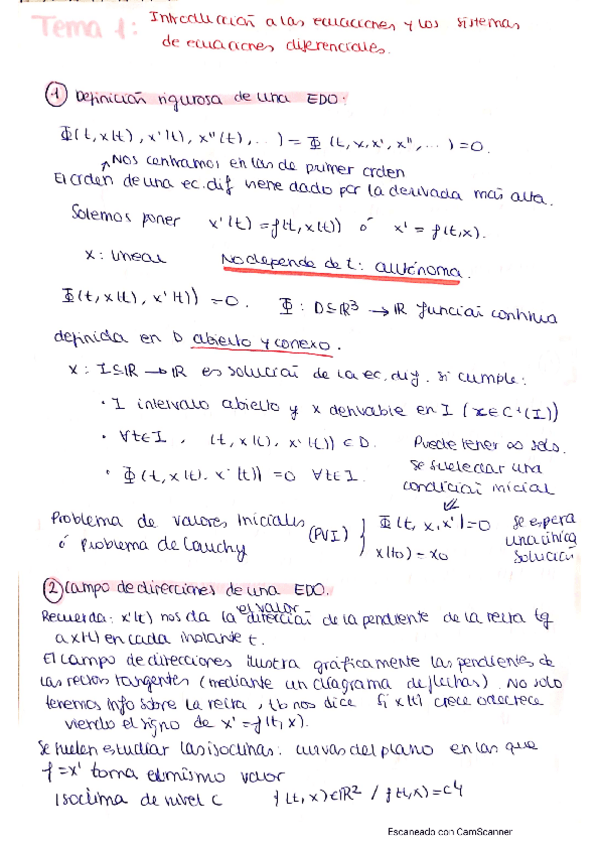 Tema 1: Introducción a las ecuaciones y los sistemas
de ecuaciones diferenciales.
① Definición rigurosa de una EDO:
Φ(t, x(t), x'(t), x''(t), ...) = Φ(t, x, x', x'', ...) = 0.
↗ Nos centramos en las de primer orden
El orden de una ec. dif viene dado por la derivada más alta.
Solemos poner x'(t) = f(t, x(t)) ó x' = f(t, x).
x: lineal No depende de t: autónoma.
Φ(t, x(t), x'(t)) = 0. Φ: D⊆ℝ³ → ℝ función continua
definida en D abierto y conexo.
x: I⊆ℝ → ℝ es solución de la ec. dif. si cumple:
· I intervalo abierto y x derivable en I (x∈C¹(I))
· ∀t∈I, (t, x(t), x'(t)) ∈ D. Puede tener ∞ sols.
· Φ(t, x(t), x'(t)) = 0 ∀t∈I. Se suele dar una
condición inicial
Problema de valores iniciales (PVI) { Φ(t, x, x') = 0 se espera
ó Problema de Cauchy x(t₀) = x₀ una única
solución
② Campo de direcciones de una EDO.
el valor
Recuerda: x'(t) nos da la dirección de la pendiente de la recta tg
a x(t) en cada instante t.
El campo de direcciones ilustra gráficamente las pendientes de
las rectas tangentes (mediante un diagrama de flechas). No solo
tenemos info sobre la recta, tb nos dice si x(t) crece o decrece
viendo el signo de x' = f(t, x).
Se suelen estudiar las isoclinas: curvas del plano en las que
f = x' toma el mismo valor
Isoclina de nivel c {(t, x)∈ℝ² / f(t, x) = c}
Escaneado con CamScanner